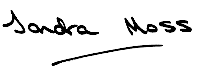 Sandra Moss